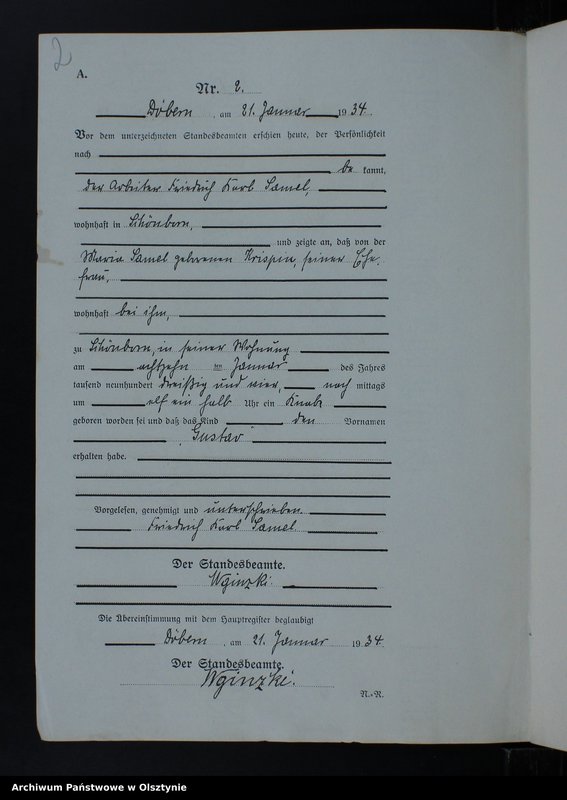 2
A.
Nr. 2.
Döbern, am 21. Januar 1934.
Vor dem unterzeichneten Standesbeamten erschien heute, der Persönlichkeit
nach
be kannt,
der Arbeiter Friedrich Karl Samel,
wohnhaft in Schönborn,
und zeigte an, daß von der
Maria Samel geborenen Krispin, seiner Ehe-
frau,
wohnhaft bei ihm,
zu Schönborn, in seiner Wohnung
am achtzehn ten Januar des Jahres
tausend neunhundert dreißig und vier, nach mittags
um elf ein halb Uhr ein Knabe
geboren worden sei und daß das Kind den Vornamen
Gustav
erhalten habe.
Vorgelesen, genehmigt und unterschrieben.
Friedrich Karl Samel
Der Standesbeamte.
Wginzki.
Die Übereinstimmung mit dem Hauptregister beglaubigt
Döbern, am 21. Januar 1934.
Der Standesbeamte.
Wginzki.
N.-R.
Archiwum Państwowe w Olsztynie